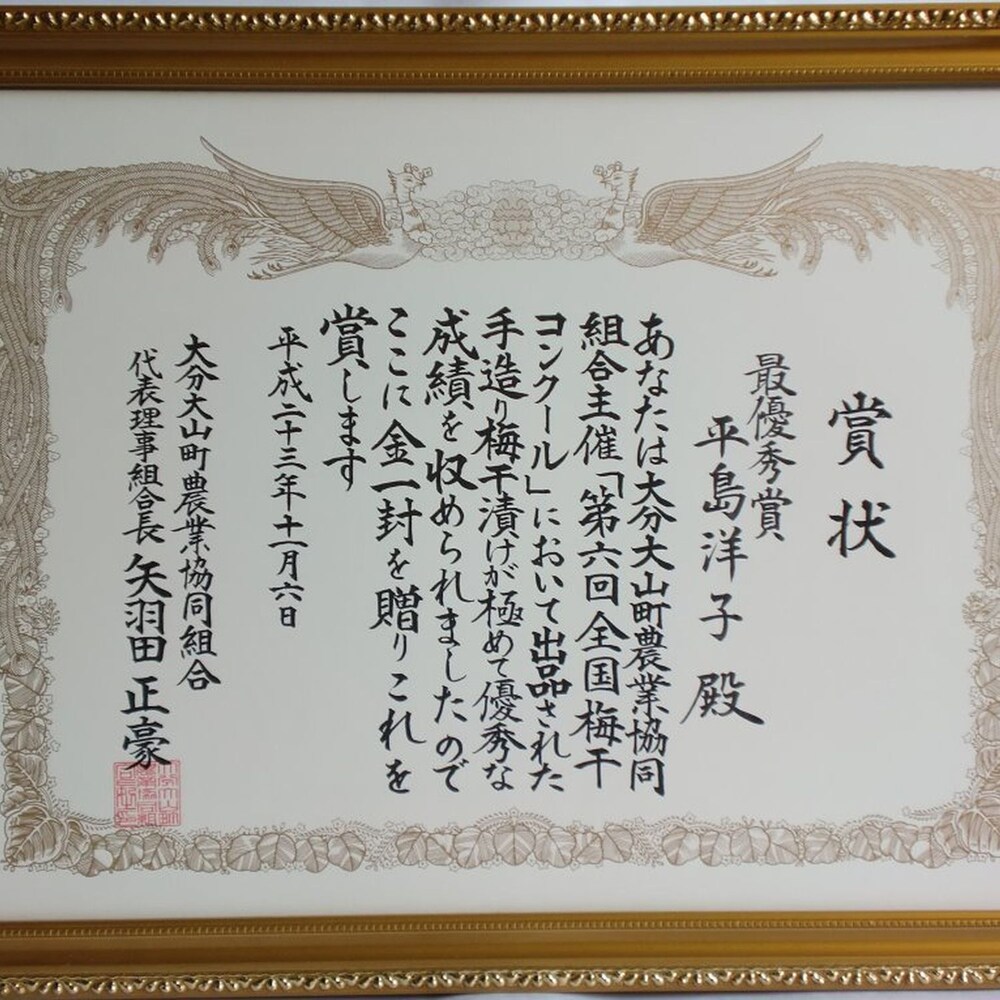 賞状
最優秀賞
平島洋子殿
あなたは大分大山町農業協同
組合主催「第六回全国梅干
コンクール」において出品された
手造り梅干漬けが極めて優秀な
成績を収められましたので
ここに金一封を贈りこれを
賞します
平成二十三年十一月六日
大分大山町農業協同組合
代表理事組合長矢羽田正豪